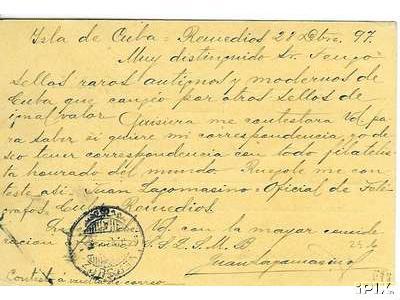 Isla de Cuba = Remedios 21 Dbre. 97.
Muy distinguido Sr. Tengo
sellos raros antiguos y modernos de
Cuba que canjeo por otros sellos de
igual valor Quisiera me contestara Vd. pa
ra saber si quiere mi correspondencia, yo de
seo tener correspondencia con todo filatelis
ta honrado del mundo. Ruegole me con
teste asi: Juan Lagomasino = Oficial de Tele
grafos = Cuba Remedios.
Vd. con la mayor conside
racion S. S. Q. S. M. B.
Juan Lagomasino
Contesté á vuelta de correo
iPIX